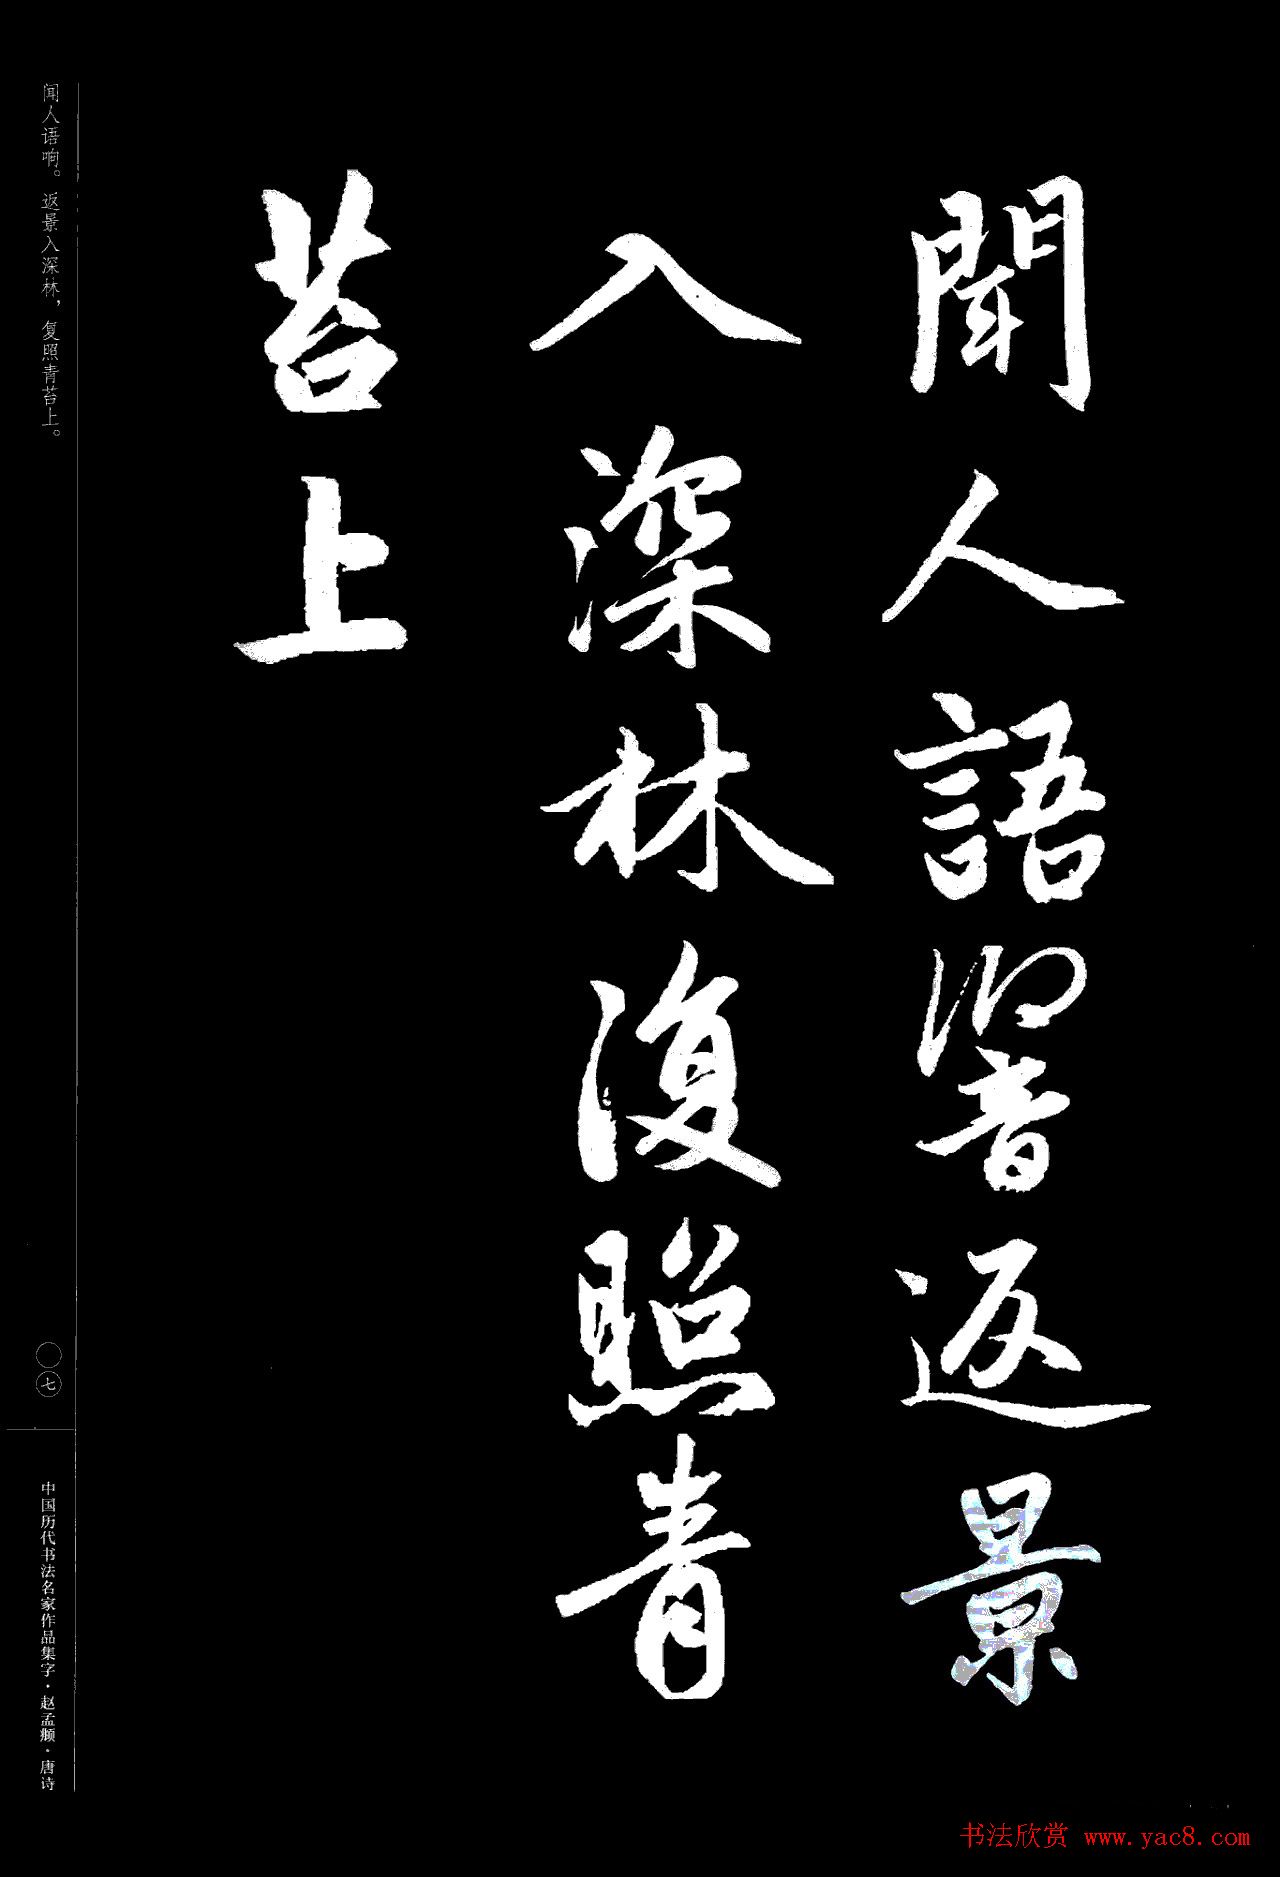 聞人語響返景
入深林復照青
苔上
闻人语响。返景入深林，复照青苔上。
〇七
中国历代书法名家作品集字·赵孟頫·唐诗
书法欣赏 www.yac8.com